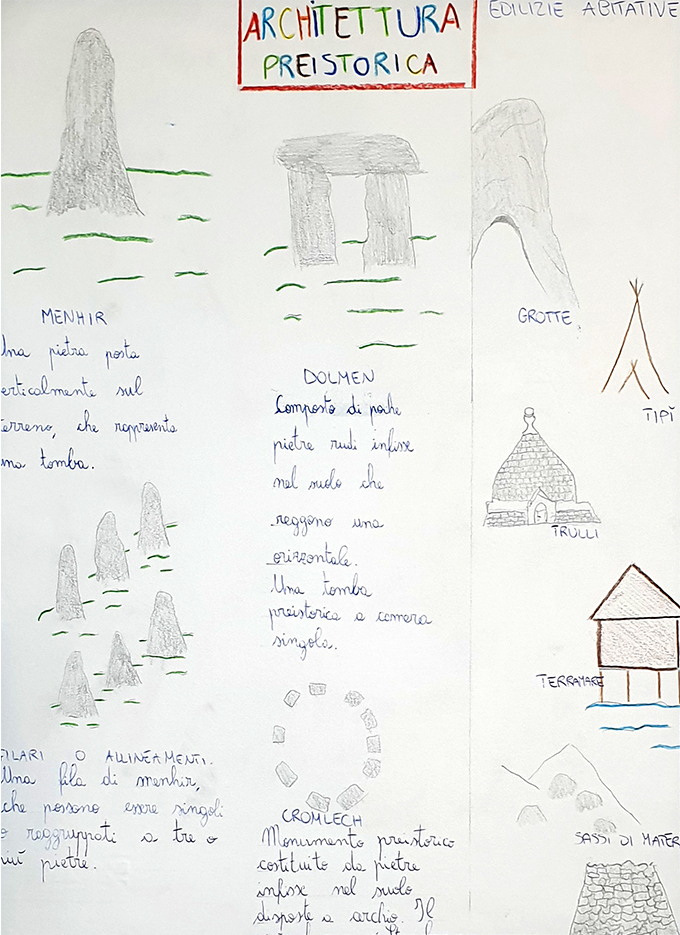 ARCHITETTURA
PREISTORICA
MENHIR
Una pietra posta
erticalmente sul
erreno, che rappresenta
una tomba.
FILARI O ALLINEAMENTI.
Una fila di menhir,
che possono essere singoli
o raggruppati a tre o
più pietre.
DOLMEN
Composto di poche
pietre rudi infisse
nel suolo che
reggono una
orizzontale.
Una tomba
preistorica a camera
singola.
CROMLECH
Monumento preistorico
costituito da pietre
infisse nel suolo
disposte a archio. Il
EDILIZIE ABITATIVE
GROTTE
TIPÌ
TRULLI
TERRAMARE
SASSI DI MATER